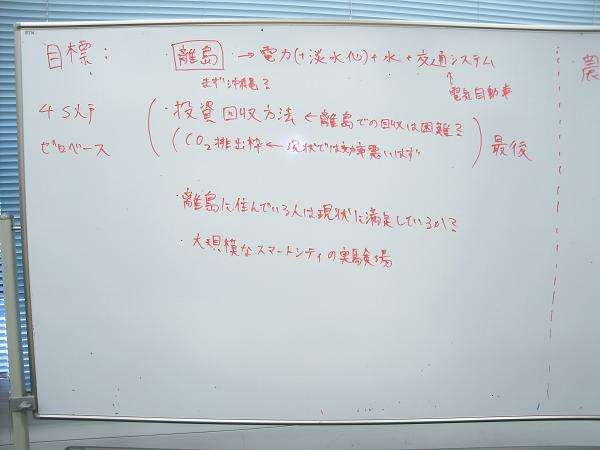 目標:
離島 → 電力(+淡水化)+水+交通システム
まず沖縄?
↑
電気自動車
・投資回収方法 ← 離島での回収は困難?
(CO2排出枠 ← 現状では効率悪いはず)
最後
ゼロベース
・離島に住んでいる人は現状に満足しているか?
・大規模なスマートシティの実験場
農